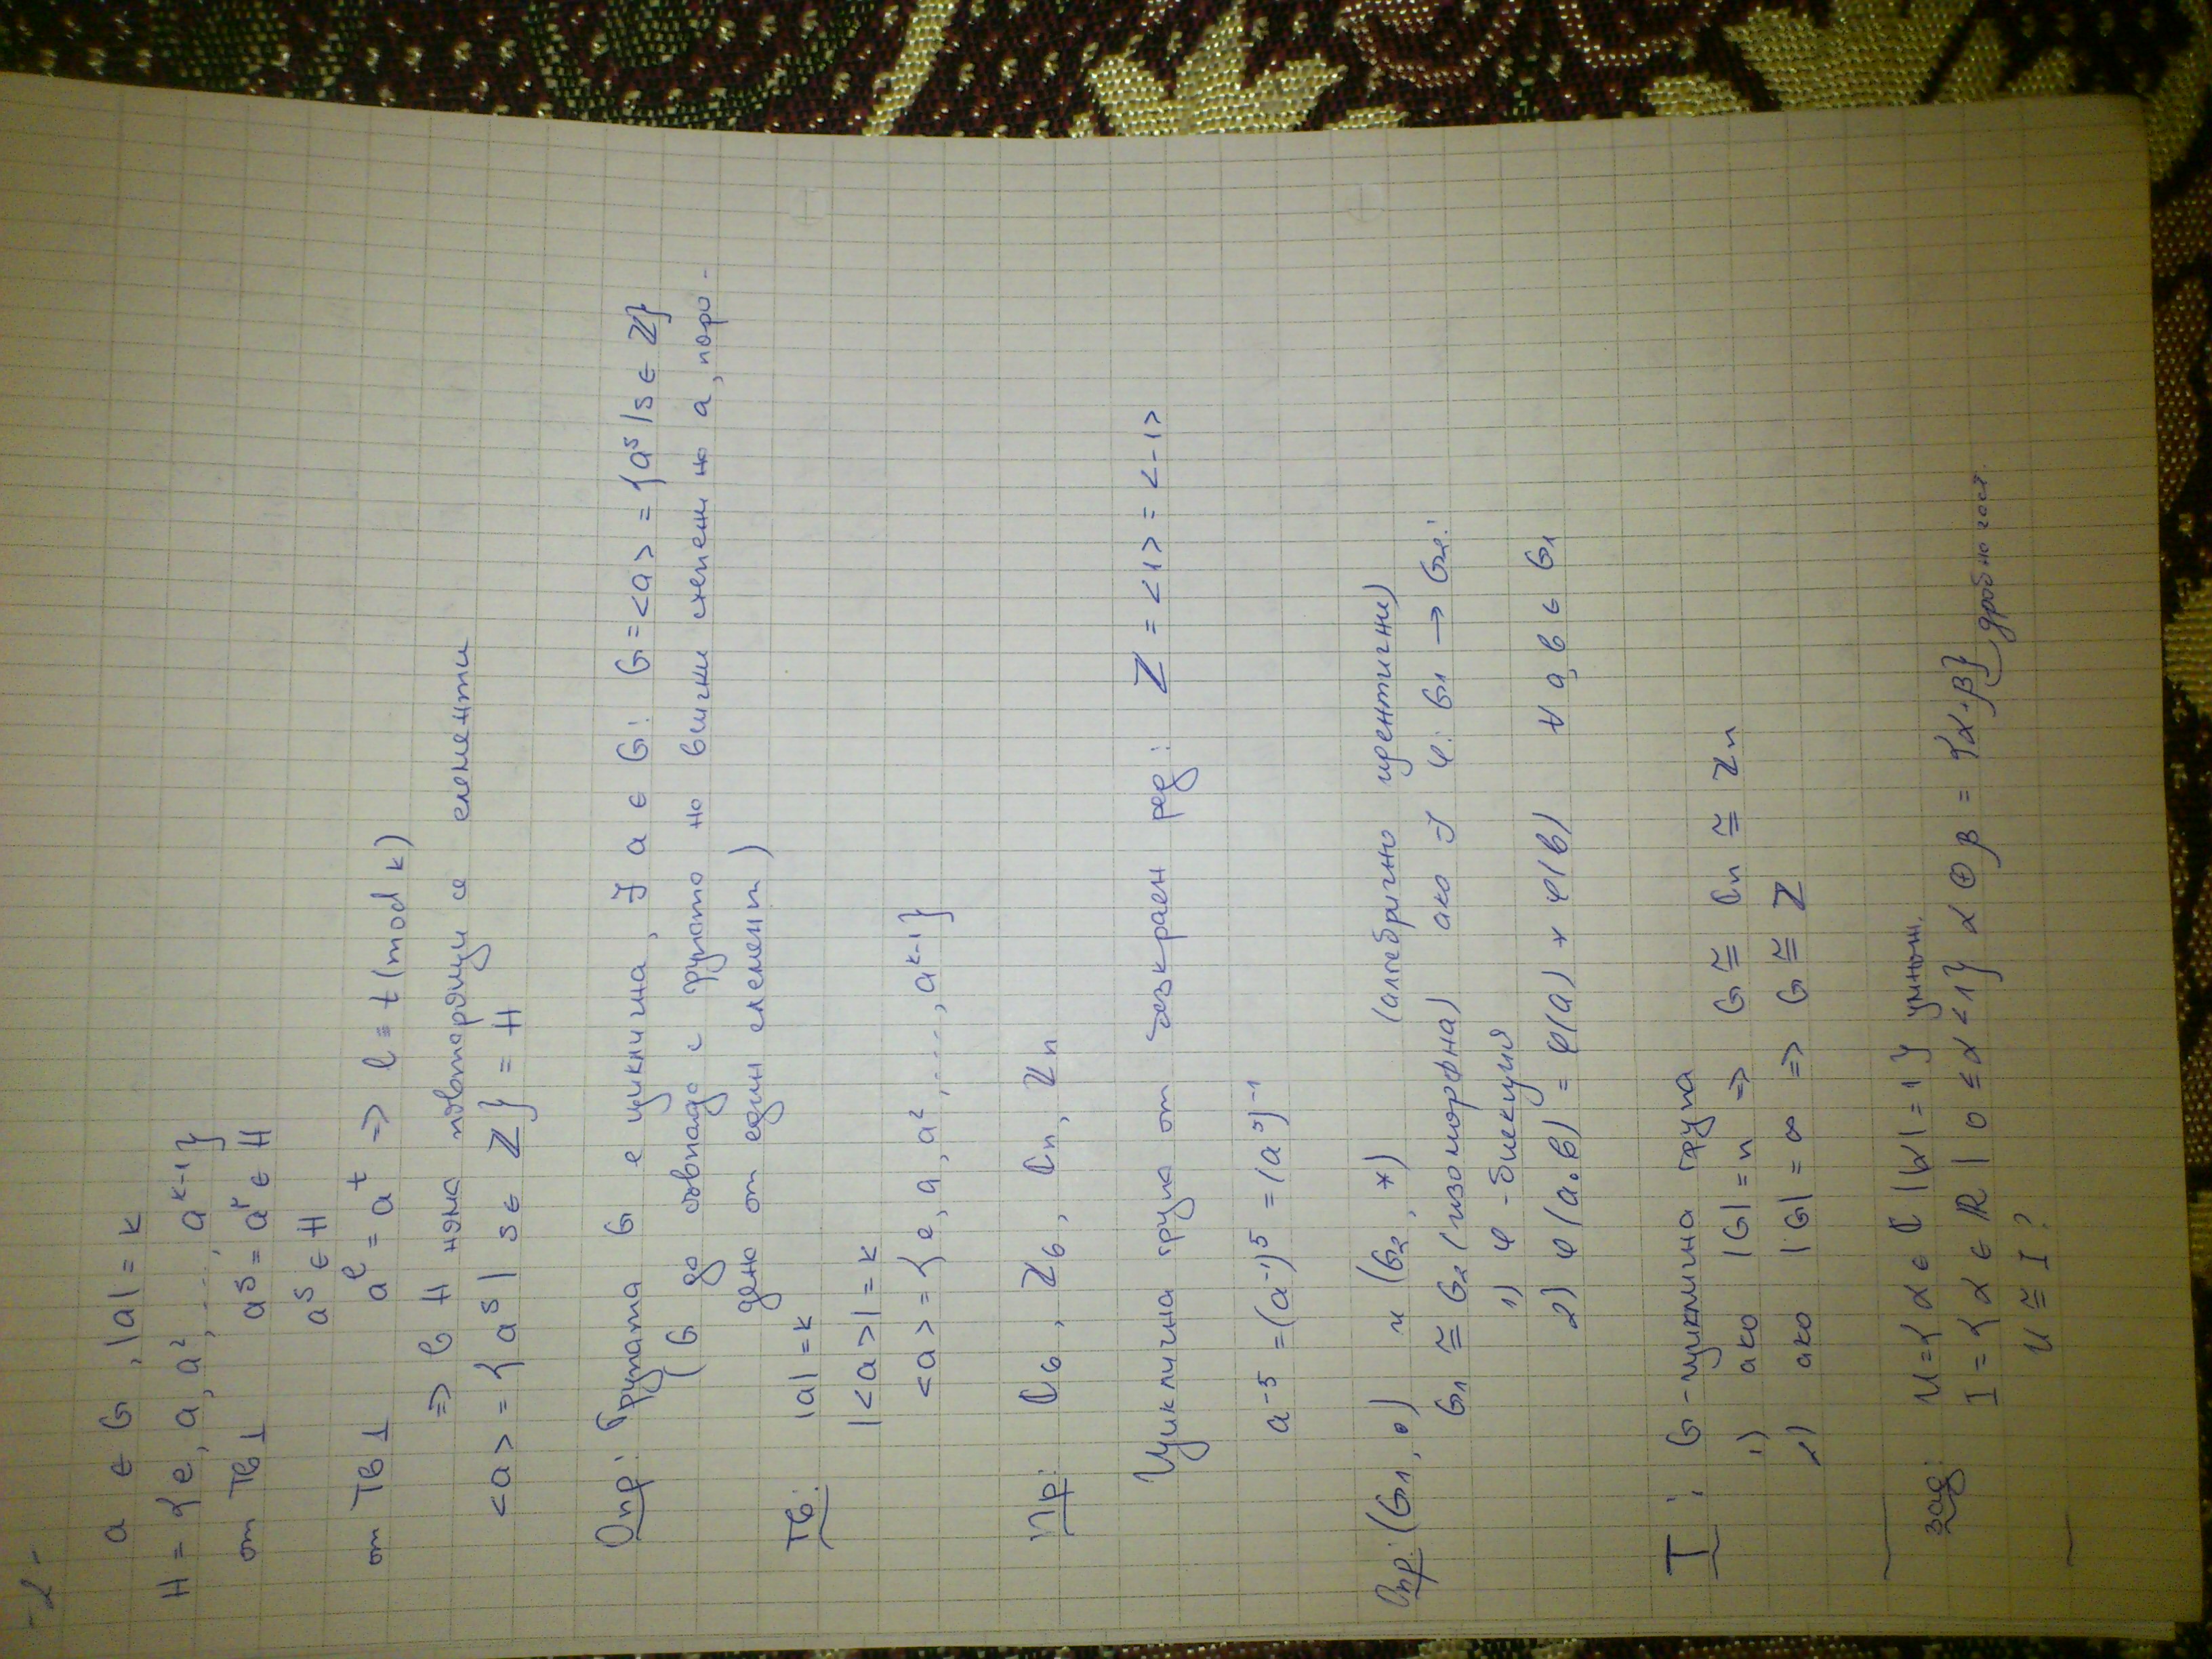 - 2 -
a ∈ G, |a| = k
H = {e, a, a², ..., a^{k-1}}
от Тв 1 a^s = a^r ∈ H
a^s ∈ H
от Тв 1 a^l = a^t => l ≡ t (mod k)
=> в H няма повтарящи се елементи
<a> = {a^s | s ∈ ℤ} = H
Опр: Групата G е циклична, ∃ a ∈ G: G = <a> = {a^s | s ∈ ℤ}
(G да съвпада с групата на всички степени на a, поро-
дено от един елемент)
Тв: |a| = k
|<a>| = k
<a> = {e, a, a², ..., a^{k-1}}
Пр: ℂ₆, ℤ₆, ℂn, ℤn
Циклична група от безкраен ред: ℤ = <1> = <-1>
a^{-5} = (a^{-1})^5 = (a^5)^{-1}
Опр: (G₁, ∘) и (G₂, *) (алгебрично идентични)
G₁ ≅ G₂ (изоморфна) ако ∃ φ: G₁ → G₂:
1) φ - биекция
2) φ(a∘b) = φ(a) * φ(b) ∀ a, b ∈ G₁
Т: G - циклична група
1) ако |G| = n => G ≅ ℂn ≅ ℤn
2) ако |G| = ∞ => G ≅ ℤ
зад: U = {α ∈ ℂ | |α| = 1} умнож.
I = {α ∈ ℝ | 0 ≤ α < 1} α ⊕ β = {α + β}
дробна част.
U ≅ I ?